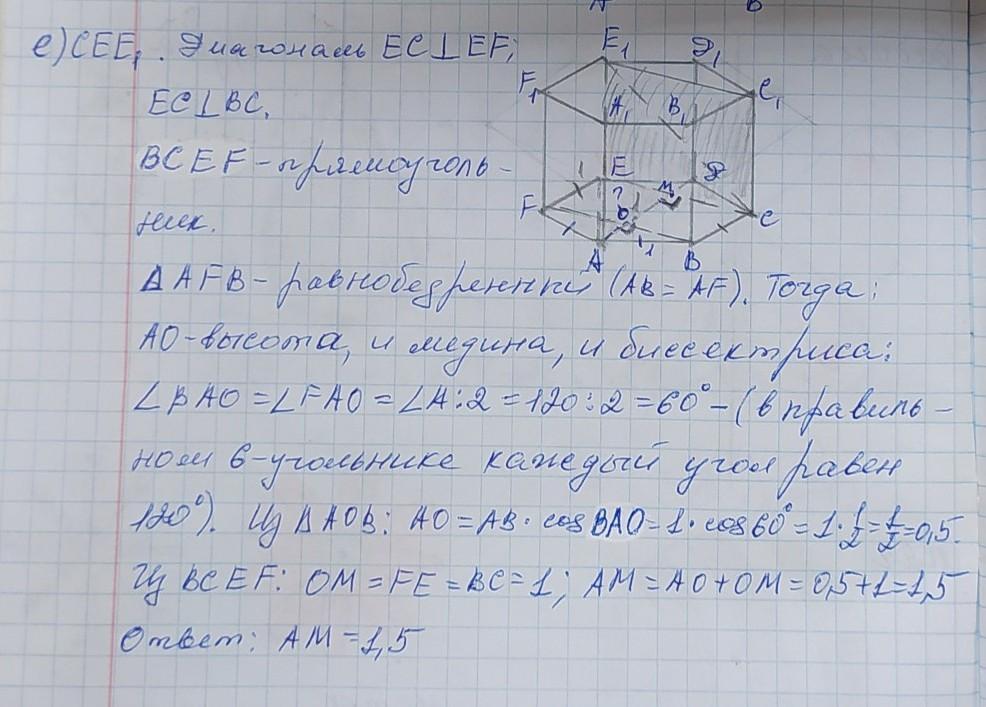 A B
е) CEE₁. Диагональ EC⊥EF;
E₁ D₁
F₁ A₁ B₁ C₁
EC⊥BC.
BCEF - прямоуголь-
1 E D
? M
F O C
ник.
1
A B
ΔAFB - равнобедренный (AB = AF). Тогда:
AO - высота, и медина, и биссектриса:
∠BAO = ∠FAO = ∠A:2 = 120:2 = 60° - (в правиль-
ном 6-угольнике каждый угол равен
120°). Из ΔAOB: AO = AB · cosBAO = 1 · cos60° = 1 · 1/2 = 1/2 = 0,5.
Из BCEF: OM = FE = BC = 1; AM = AO + OM = 0,5+1=1,5
Ответ: AM = 1,5